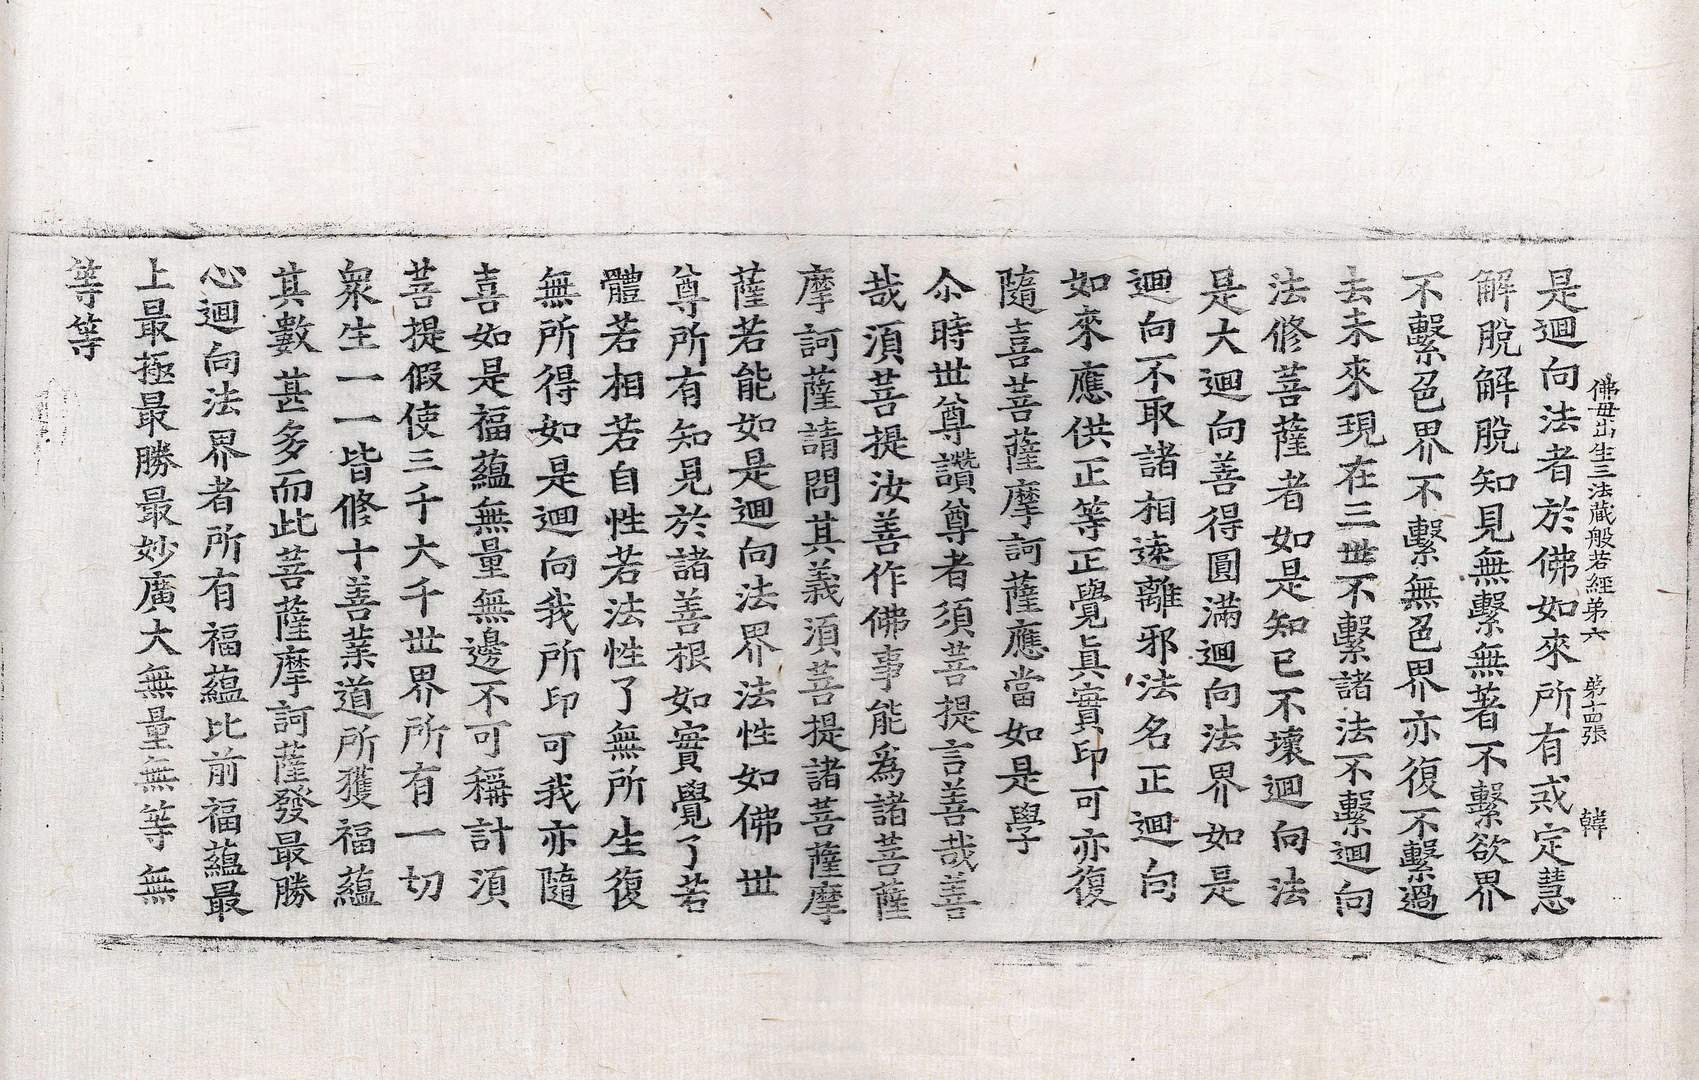 佛母出生三法藏般若經第六 第十四張 韓
是迴向法者於佛如來所有戒定慧
解脫解脫知見無繫無著不繫欲界
不繫色界不繫無色界亦復不繫過
去未來現在三世不繫諸法不繫迴向
法修菩薩者如是知已不壞迴向法
是大迴向善得圓滿迴向法界如是
迴向不取諸相遠離邪法名正迴向
如來應供正等正覺眞實印可亦復
隨喜菩薩摩訶薩應當如是學
尒時世尊讚尊者須菩提言善哉善
哉須菩提汝善作佛事能爲諸菩薩
摩訶薩請問其義須菩提諸菩薩摩
薩若能如是迴向法界法性如佛世
尊所有知見於諸善根如實覺了若
體若相若自性若法性了無所生復
無所得如是迴向我所印可我亦隨
喜如是福蘊無量無邊不可稱計須
菩提假使三千大千世界所有一切
衆生一一皆修十善業道所獲福蘊
其數甚多而此菩薩摩訶薩發最勝
心迴向法界者所有福蘊比前福蘊最
上最極最勝最妙廣大無量無等無
等等